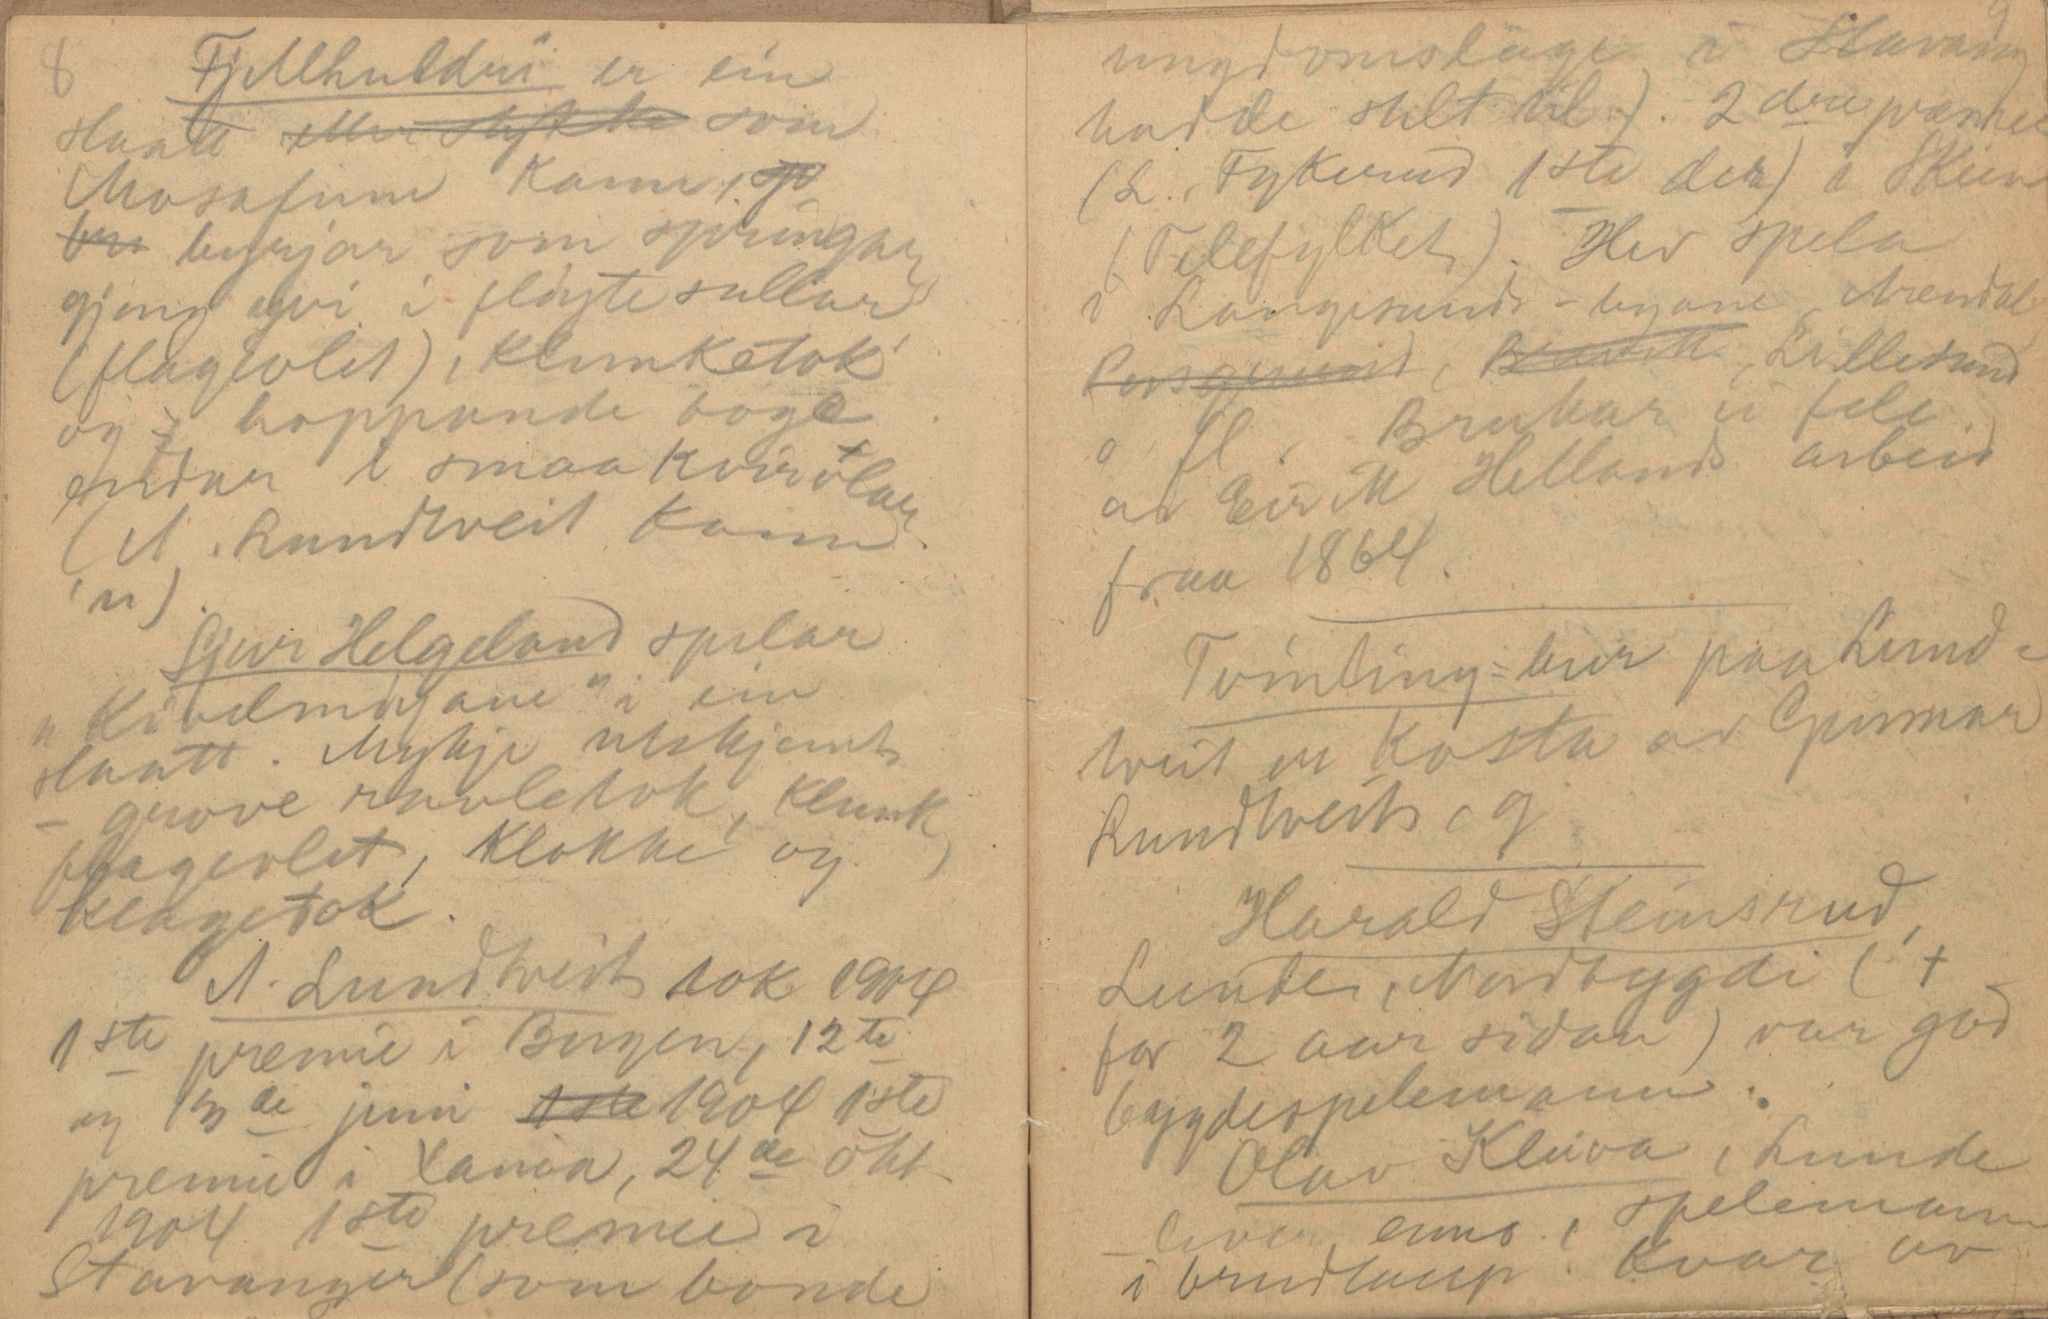 8
Fjellhuldri er ein
slaatt eller stykke som
Mosafinn kann, sp
bu byrjar som springar,
gjeng yvi i fløytesullar
(flageolet), klunketok
og i hoppande boge
endar i smaa kvirvlar
(N. Lundtveit kann
'n).
Sjur Helgeland spelar
"Kivlemøyane" i ein
slaatt. Mykje utskjemt
– grove tok, klunk,
flageolet, klokke og
klagetok.
N. Lundtveit tok 1904
1ste premie i Bergen, 12te
og 13de juni 1ste 1904 1ste
premie i Xania, 24de okt
1904 1ste premie i
Stavanger (som bonde
9
ungdomslage i Stavang
hadde stilt til). 2dre premie
(L. Fykerud 1ste der) i Skien
(Telefylket). Hev spela
i Langesunds-byane, Arendal
Porsgrund, Brevik, Lillesand
o. fl. Brukar ei fele
av Eir M Helland arbeid
fraa 1864.
Tvinling-bur paa Lund-
tveit er kosta av Gunnar
Lundtveit, g
Harald Steinsrud,
Lunde, Nordbygdi (†
for 2 aar sidan) var god
bygdespelemann.
Olav Kleiva, Lunde
– liver enno, spelemann
i brudlaup. Kvar av